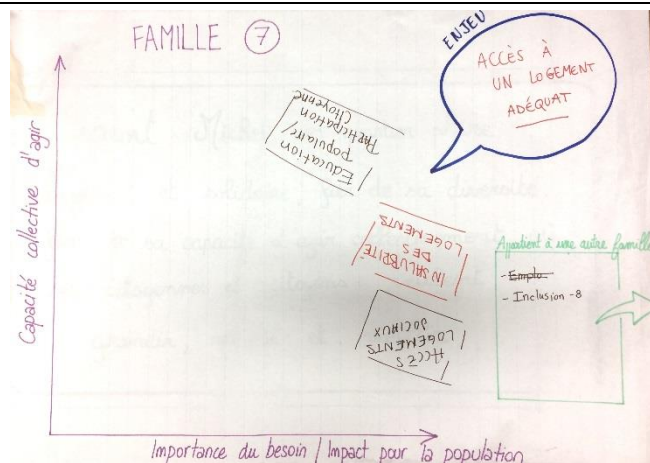 FAMILLE 7
ENJEU
ACCÈS À
UN LOGEMENT
ADÉQUAT
Capacité collective d'agir
Education
Populaire/
Participation
Citoyenne
INSALUBRITÉ
DES
LOGEMENTS
ACCÈS
LOGEMENTS
SOCIAUX
Appartient à une autre famille
- Emploi
- Inclusion - 8
Importance du besoin / Impact pour la population